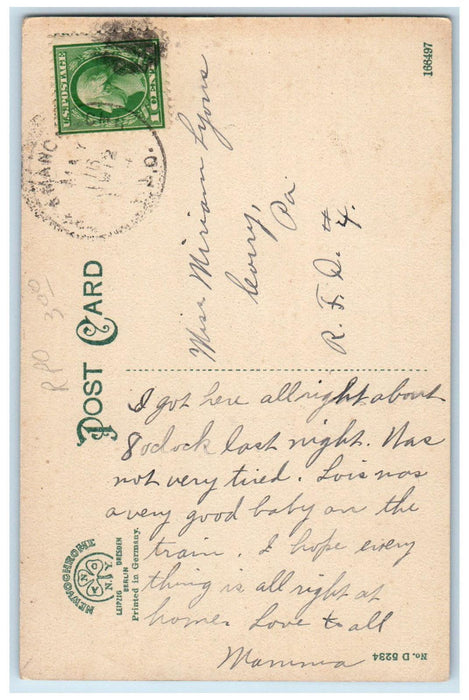 U.S. POSTAGE
1 CENT
166497
Miss Miriam Lyons
Corry,
Pa
R. F. D. # 4.
R.P.O.
MAY
16
POST CARD
RPO 3.00
I got here allright about
8 oclock last night. Was
not very tired. Lois was
a very good baby on the
train. I hope every
thing is all right at
home. Love to all
Mamma
NEWVOCHROME
N.Y.
LEIPZIG DRESDEN
BERLIN
Printed in Germany.
No. D 5234